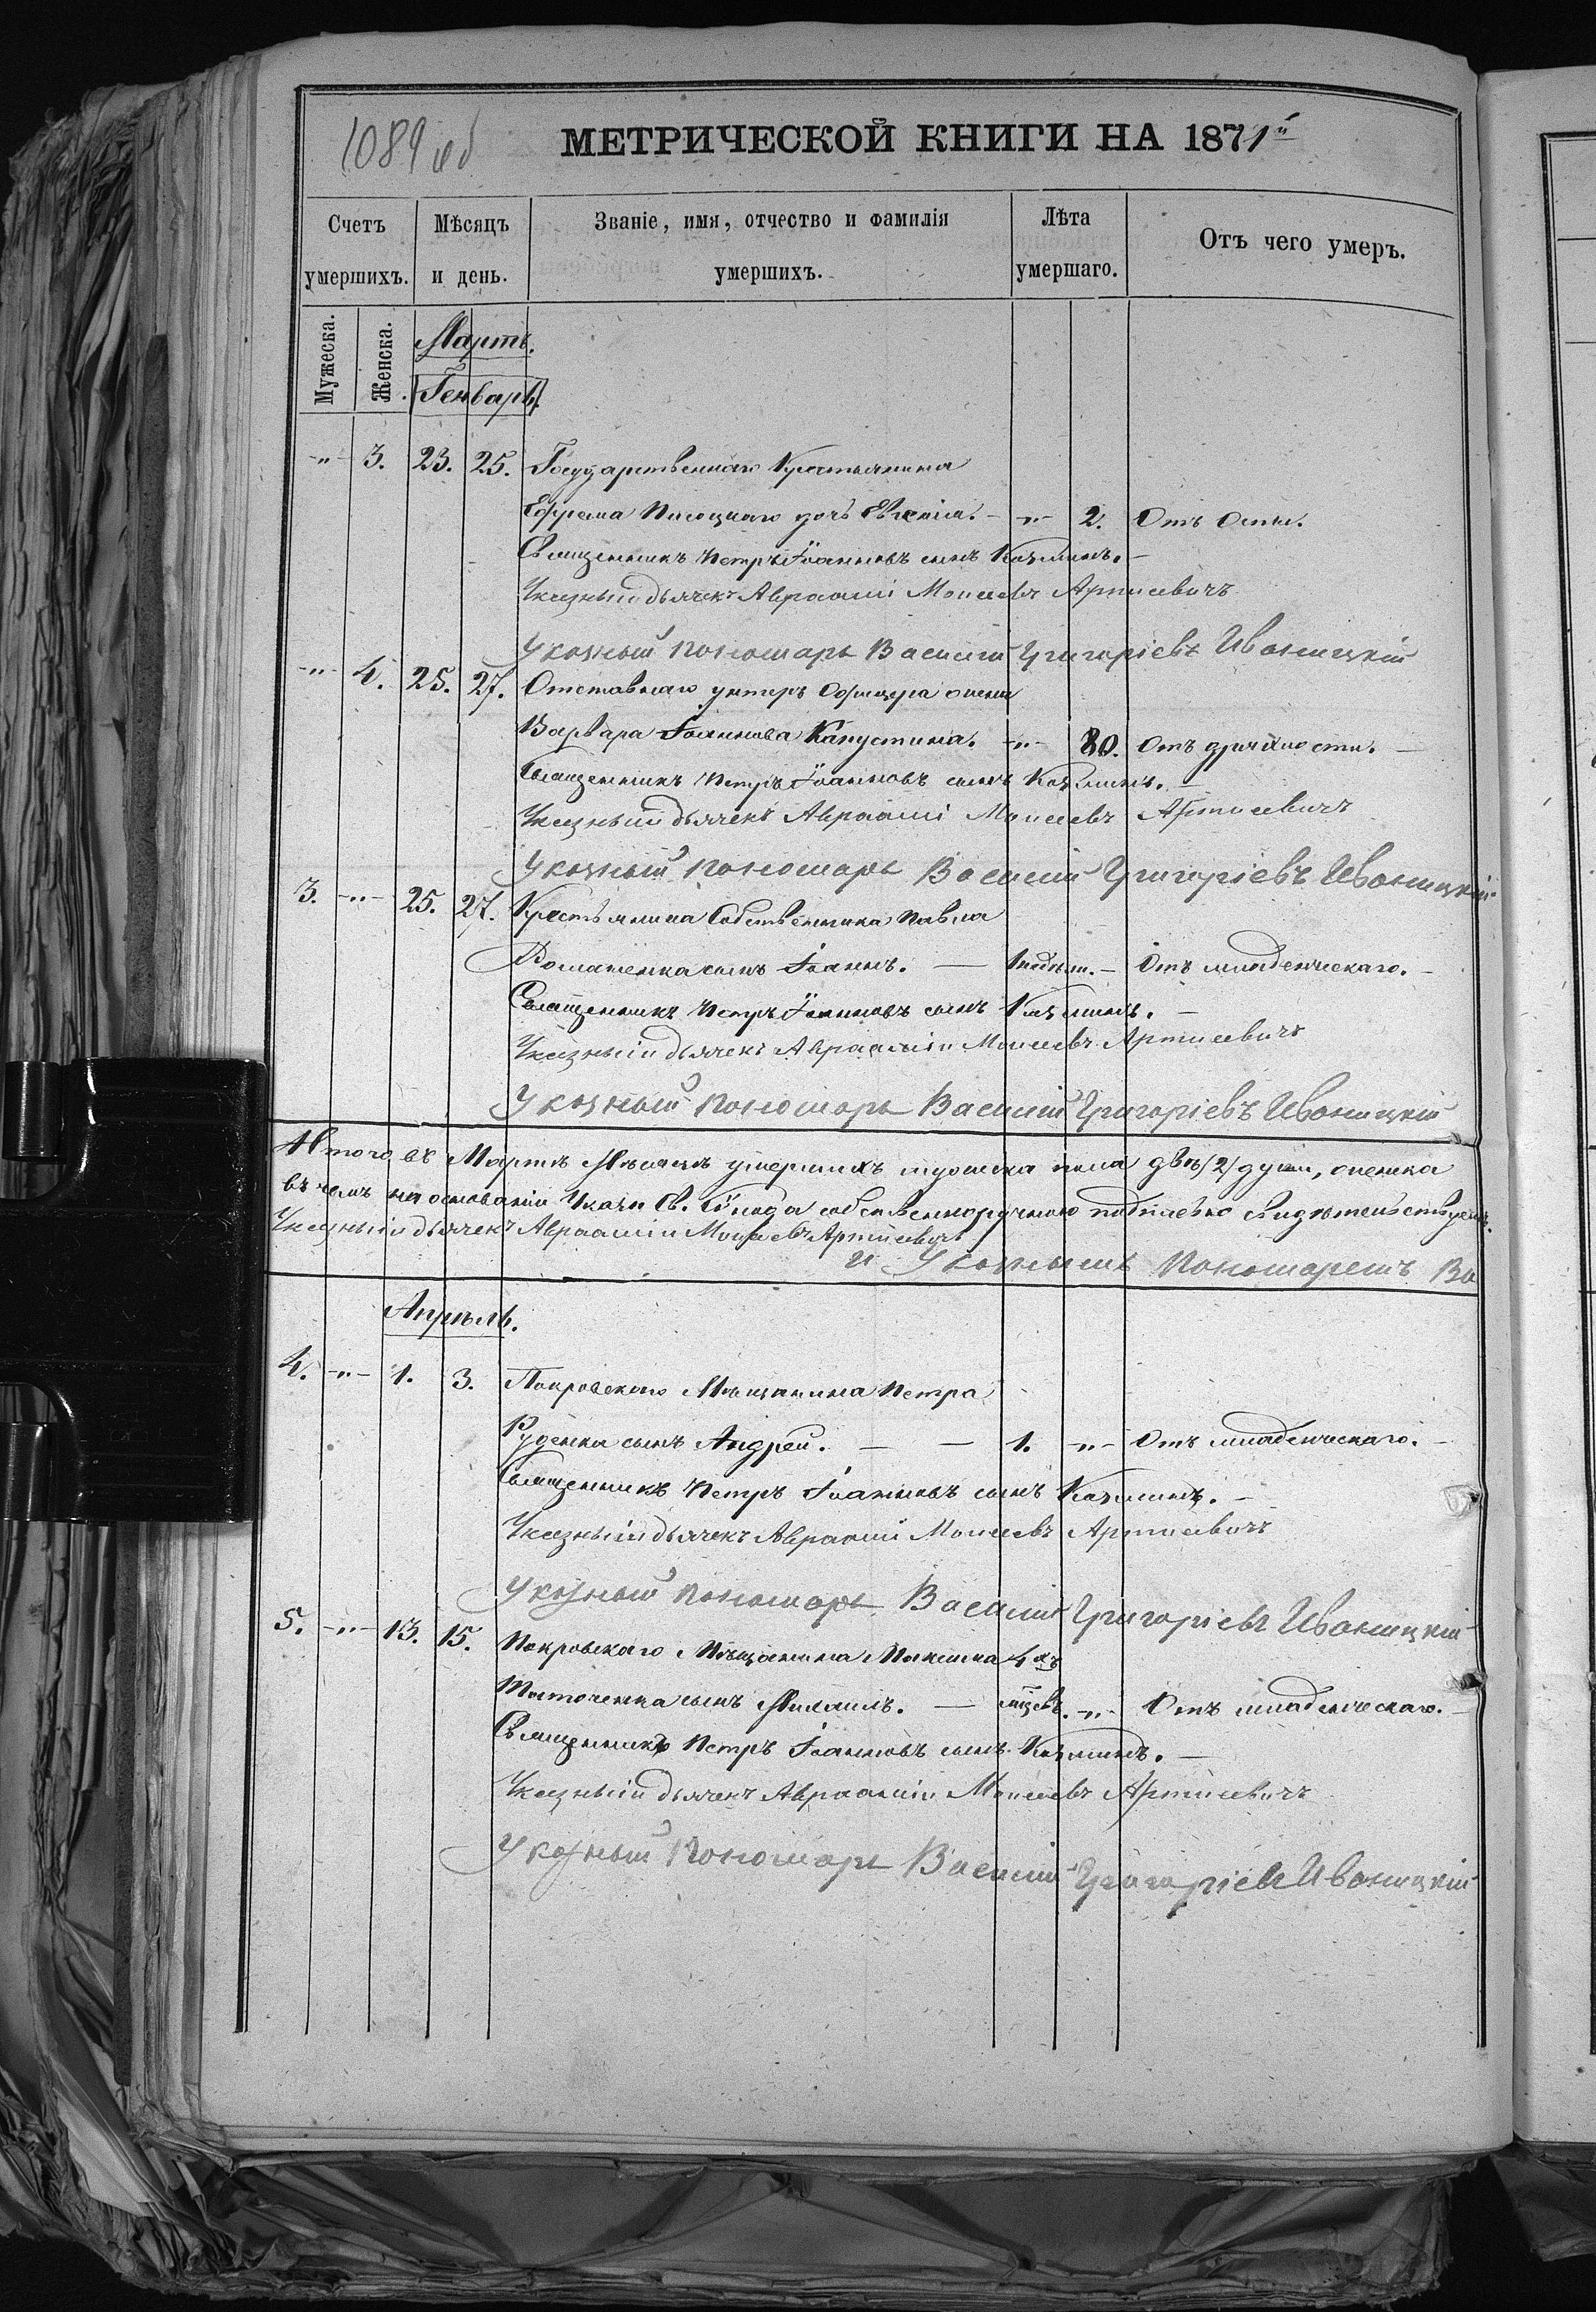 1089 об
МЕТРИЧЕСКОЙ КНИГИ НА 1871й
Счетъ умершихъ.
Мѣсяцъ и день.
Званіе, имя, отчество и фамилія умершихъ.
Лѣта умершаго.
Отъ чего умеръ.
Мужеска.
Женска.
Мартъ.
Генварь.
-"- 3. 23. 25. Государственнаго Крестьянина
Ефрема Писоцкаго дочь Евгенія. -"- 2. Отъ Оспы.
Священникъ Петръ Іоанновъ сынъ Казминъ.
Указный дьячекъ Авраамій Моисеевъ Артисевичъ
Указный пономарь Василій Григоріевъ Иваницкій
-"- 4. 25. 27. Отставнаго унтеръ Офицера жена
Варвара Іоаннова Капустина. -"- 80. Отъ дряхлости.
Священникъ Петръ Іоанновъ сынъ Казминъ.
Указный дьячекъ Авраамій Моисеевъ Артисевичъ
Указный пономарь Василій Григоріевъ Иваницкій
3. -"- 25. 27. Крестьянина Собственника Павла
Романенка сынъ Іоаннъ. — 1 недѣли. - Отъ младенческаго.
Священникъ Петръ Іоанновъ сынъ Казминъ.
Указный дьячекъ Авраамій Моисеевъ Артисевичъ
Указный пономарь Василій Григоріевъ Иваницкій
Итого въ Мартѣ Мѣсяцѣ умершихъ мужеска пола двѣ /2/ души, женска
въ чемъ на основаніи Указа Св. Сѵнода собственноручною подписью свидѣтельствуемъ.
Указный дьячекъ Авраамій Моисеевъ Артисевичъ
и Указнымъ Пономаремъ Ва
Апрѣль.
4. -"- 1. 3. Покровскаго Мѣщанина Петра
Руденка сынъ Андрей. — — 1. -"- Отъ младенческаго.
Священникъ Петръ Іоанновъ сынъ Казминъ.
Указный дьячекъ Авраамій Моисеевъ Артисевичъ
Указный пономарь Василій Григоріевъ Иваницкій
5. -"- 13. 15. Покровскаго Мѣщанина Максима 4хъ
сынъ Михаилъ. — мѣцевъ. -"- Отъ младенческаго.
Священникъ Петръ Іоанновъ сынъ Казминъ.
Указный дьячекъ Авраамій Моисеевъ Артисевичъ
Указный Пономарь Василій Григоріевъ Иваницкій